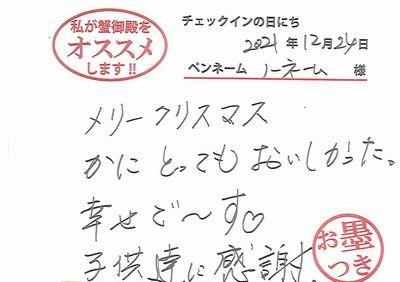 私が蟹御殿を
オススメ
します!!
チェックインの日にち
2021年12月24日
ペンネーム ノーネーム 様
メリークリスマス
かにとってもおいしかった。
幸せで〜す♡
子供達に感謝。
お墨
つき